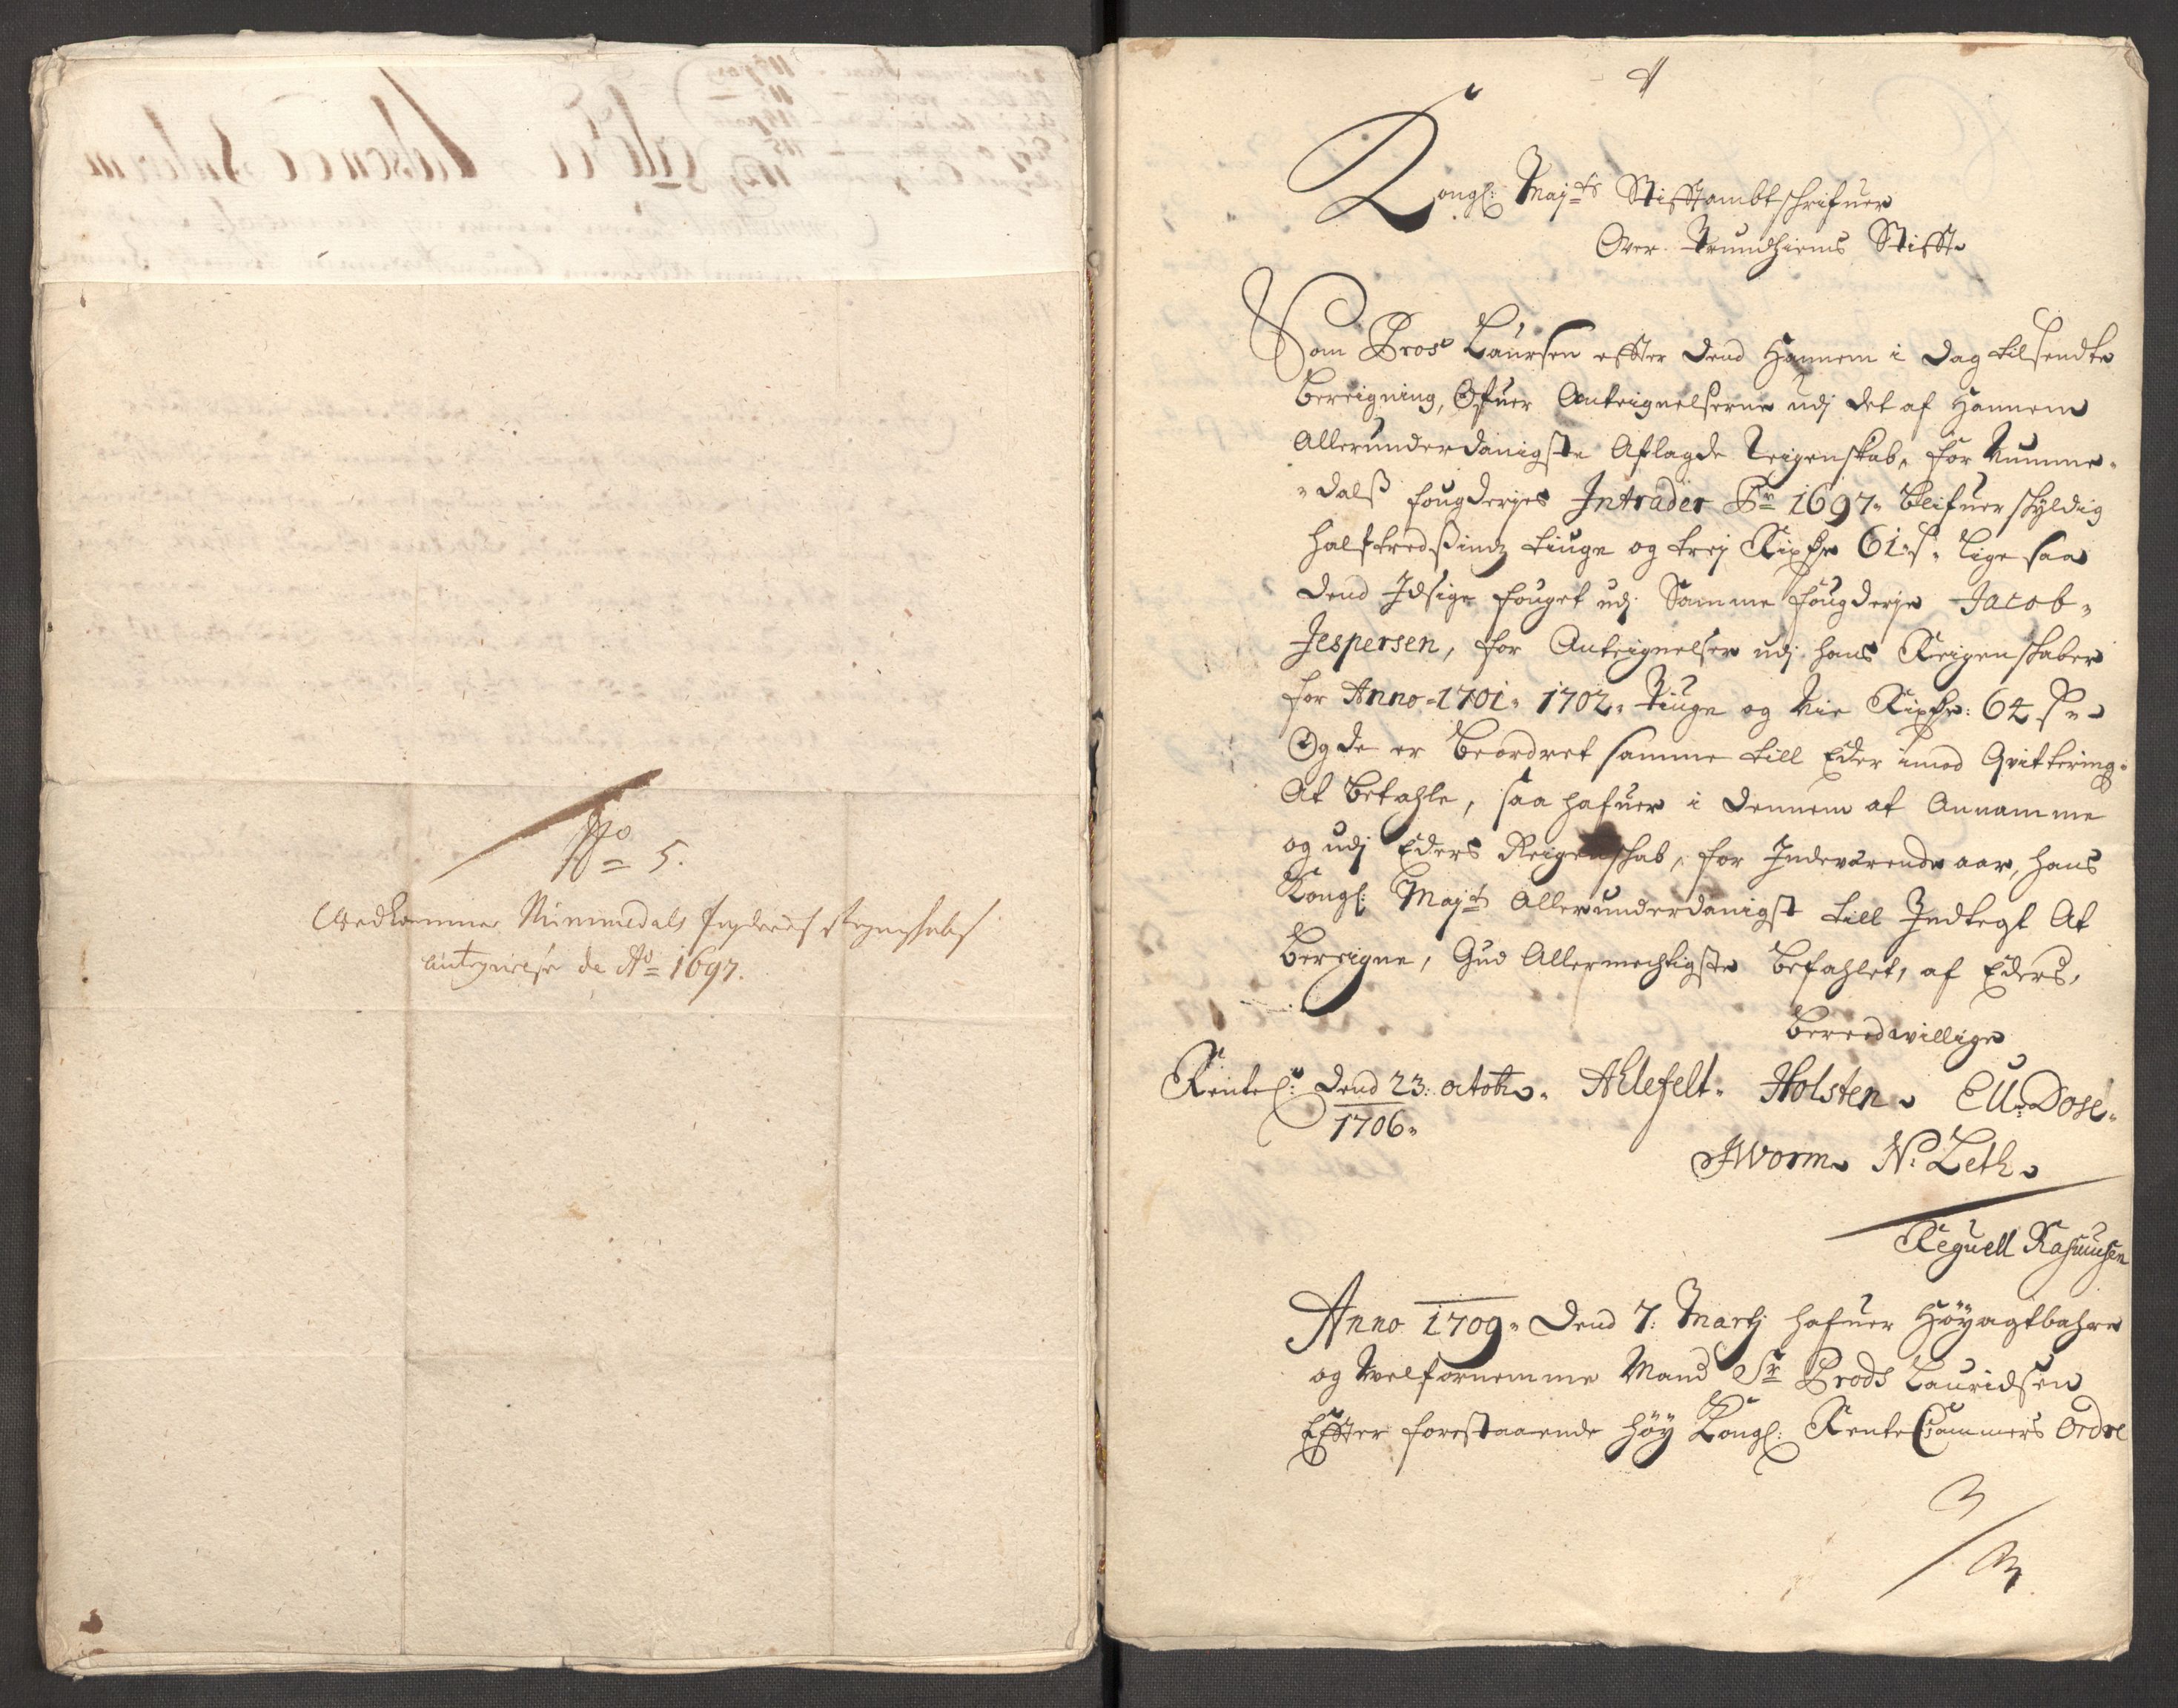 No 5.
Vedkommer Nummedals fogderies Regnskabs
antegnelse de Ao 1697.
Kongl: Majts Stifftambtschrifuer
Over Trundhiems Stifft
Som Broe Laursen effter dend hannem i dag tilsendte
Bereigning, Ofuer Anteignelserne udj det af hannem
Allerunderdanigste Aflagde Reigenskab, for Numme-
dalß fougderjes Intrader Ao 1697. blifuer skyldig
halftredßindz tiuge og trej Rixdr 61 s. lige saa
dend Idsige fouget udj Samme fougderje Jacob
Jespersen, for Anteignelser udj hans Reigenskaber
for Anno 1701. 1702. tiuge og Nie Rixdr: 64 s
Og de er beordret samme till Eder imod Qvittering
At betahle, saa hafuer i dennem at Annamme
og udj Eders Reigenschab, for Indeværende aar, hans
Kongl: Majts Allerunderdanigst till Indtegt At
bereigne, Gud Allermechtigste befahlet, af Eders,
beredvillige
Rentec: dend 23. octobr. Ahlefelt. Holsten. CU: Dose.
1706.
JWorm. N: Leth.
Reguell Rasmusen
Anno 1709. Dend 7. Martj hafuer Höyagtbahre
og Welfornemme Mand Sr Brods Lauridsen
Effter forestaaende höy Kongl: RenteCammers Ordre